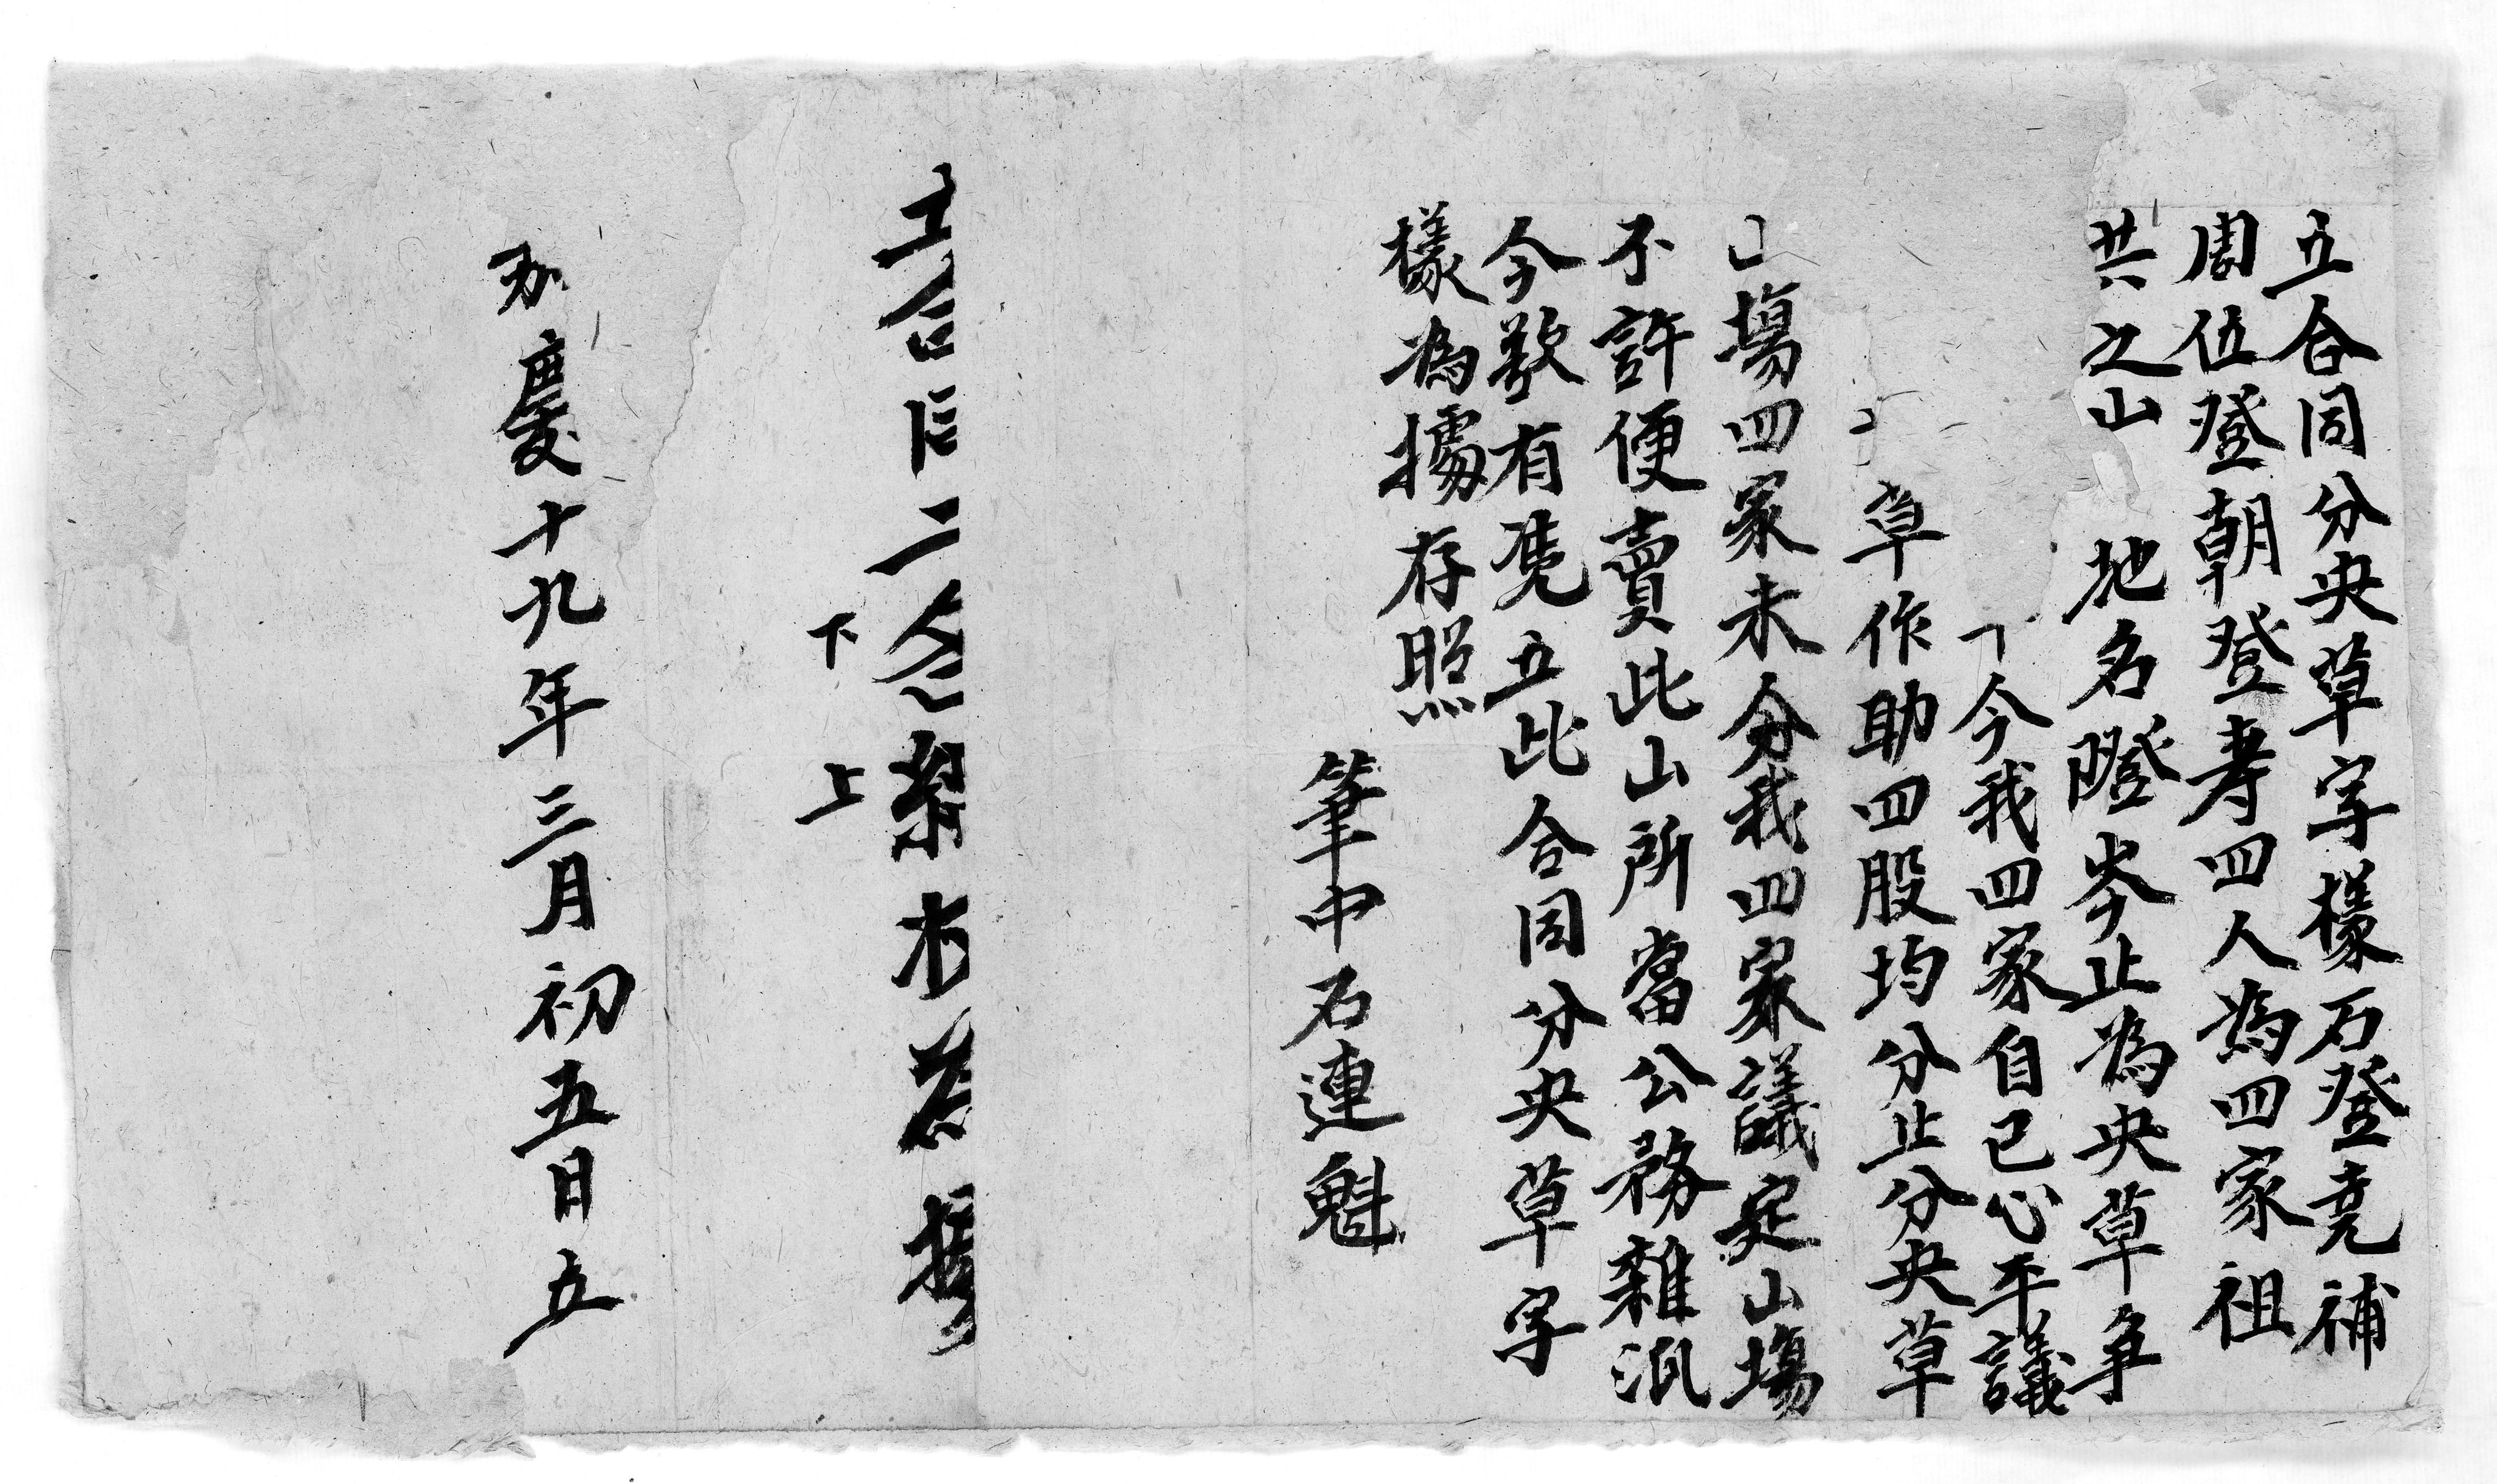 立合同分央草字樣石登堯補
周伍登朝登壽四人為四家祖
共之山地名隥岺止為央草争
今我四家自己心平議
草作助四股均分止分央草
山塲四家未分我四家議定山塲
不許便賣此山所當公務雜派
今欲有凴立此合同分央草字
樣為據存照
筆中石連魁
下
上
嘉慶十九年三月初五日立